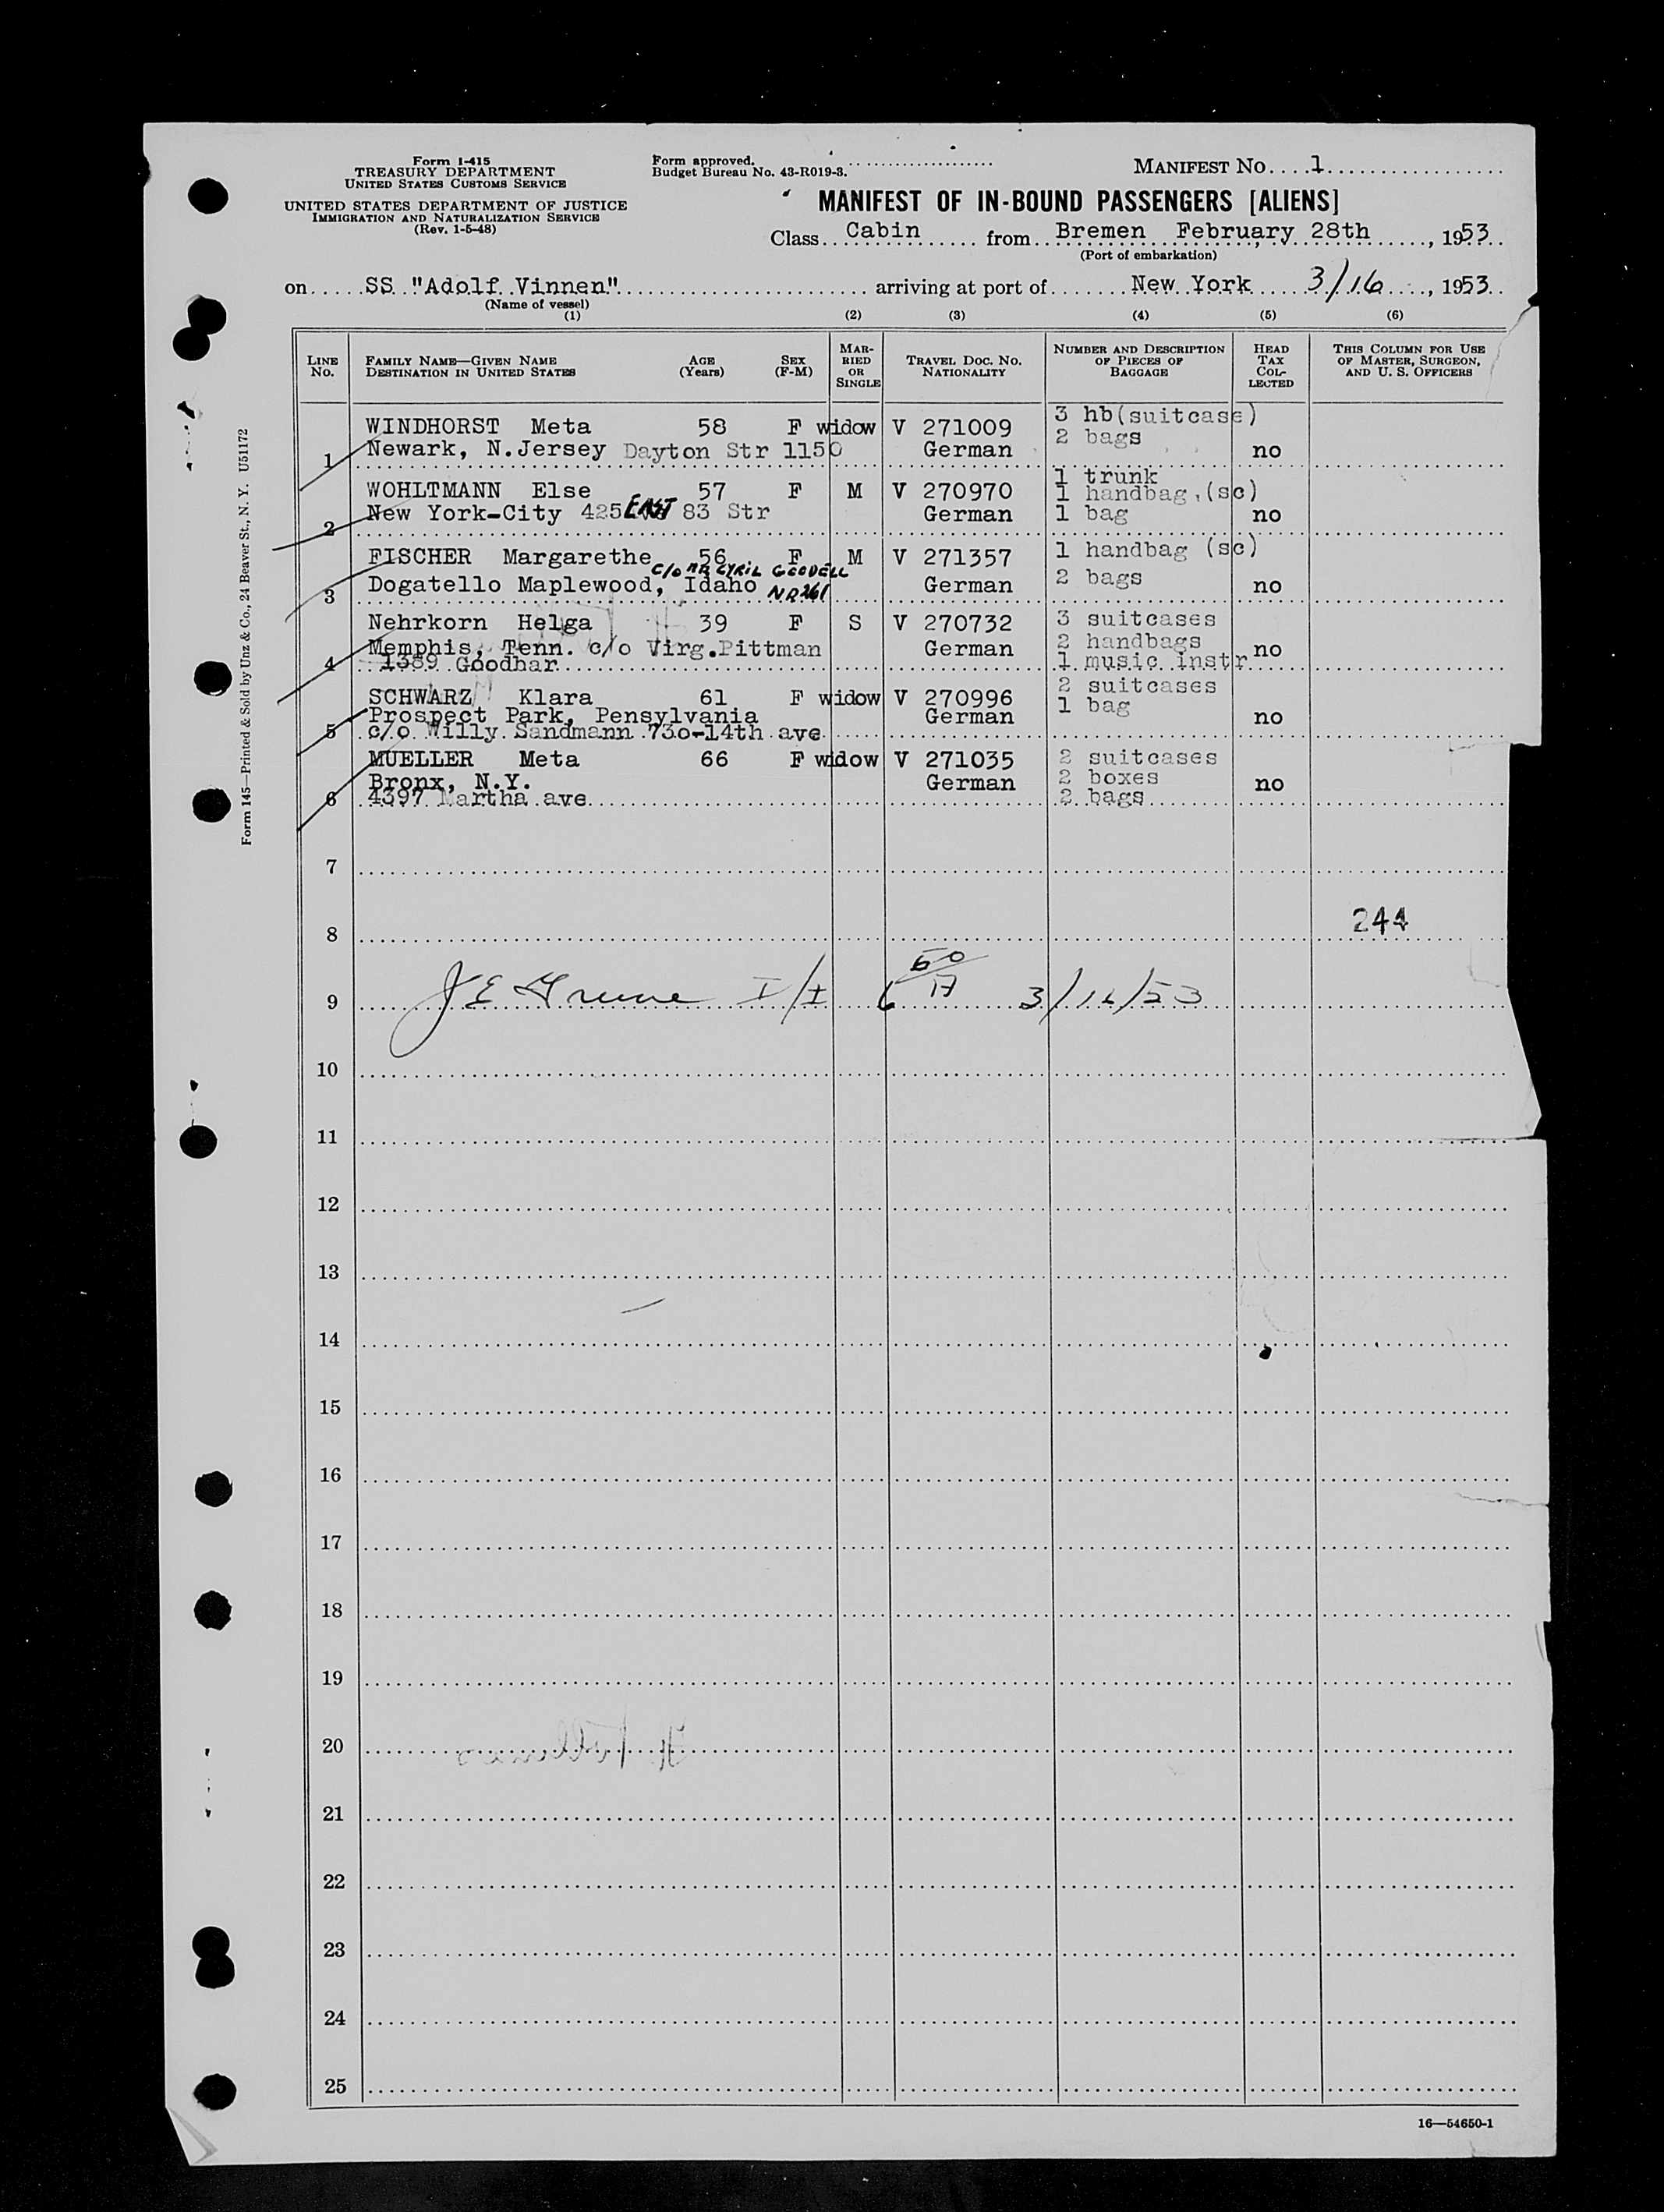 Form I-415
TREASURY DEPARTMENT
UNITED STATES CUSTOMS SERVICE
UNITED STATES DEPARTMENT OF JUSTICE
IMMIGRATION AND NATURALIZATION SERVICE
(Rev. 1-5-48)
Form approved.
Budget Bureau No. 43-R019-3.
MANIFEST NO. 1
MANIFEST OF IN-BOUND PASSENGERS [ALIENS]
Class Cabin from Bremen February 28th, 1953
(Port of embarkation)
on SS "Adolf Vinnen" arriving at port of New York 3/16, 1953
(Name of vessel)
(1) (2) (3) (4) (5) (6)
LINE NO. FAMILY NAME—GIVEN NAME DESTINATION IN UNITED STATES AGE (Years) SEX (F-M) MARRIED OR SINGLE TRAVEL DOC. NO. NATIONALITY NUMBER AND DESCRIPTION OF PIECES OF BAGGAGE HEAD TAX COLLECTED THIS COLUMN FOR USE OF MASTER, SURGEON, AND U. S. OFFICERS
WINDHORST Meta 58 F widow V 271009 3 hb(suitcase)
1 Newark, N.Jersey Dayton Str 1150 German 2 bags no
1 trunk
WOHLTMANN Else 57 F M V 270970 1 handbag,(sc)
2 New York-City 425 EAST 83 Str German 1 bag no
FISCHER Margarethe 56 F M V 271357 1 handbag (sc)
c/o MR CYRIL GOODELL
3 Dogatello Maplewood, Idaho NR 261 German 2 bags no
Nehrkorn Helga 39 F S V 270732 3 suitcases
Memphis, Tenn. c/o Virg.Pittman German 2 handbags no
4 1389 Goodhar 1 music instr
2 suitcases
SCHWARZ Klara 61 F widow V 270996 1 bag
Prospect Park, Pensylvania German no
5 c/o Willy Sandmann 730-14th ave
MUELLER Meta 66 F widow V 271035 2 suitcases
Bronx, N.Y. German 2 boxes no
6 4397 Martha ave 2 bags
7
8 244
9 3/16/53
10
11
12
13
14
15
16
17
18
19
20
21
22
23
24
25
16—54650-1
Form 145—Printed & Sold by Unz & Co., 24 Beaver St., N. Y. U51172